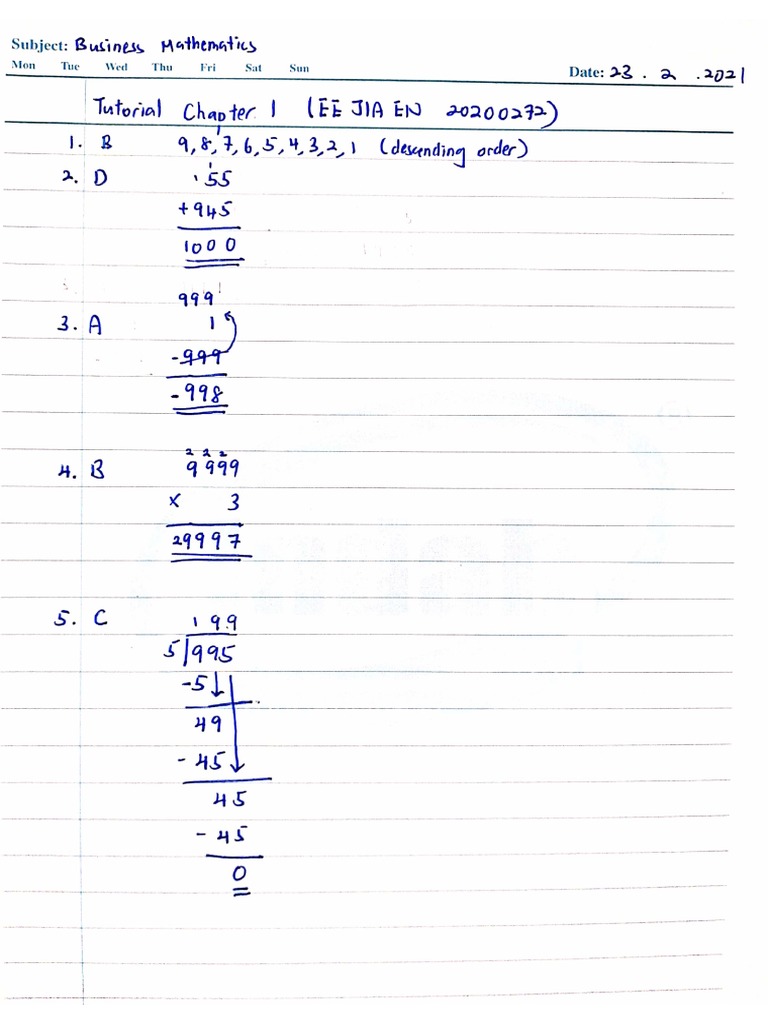 Subject: Business Mathematics
Mon Tue Wed Thu Fri Sat Sun
Date: 23 . 2 . 2021
Tutorial Chapter 1 (EE JIA EN 20200272)
1. B 9, 8, 7, 6, 5, 4, 3, 2, 1 (descending order)
2. D 55
+ 945
1000
999
3. A 1
- 999
- 998
2 2 2
4. B 9999
x 3
29997
5. C 199
5 995
- 5
49
- 45
45
- 45
0